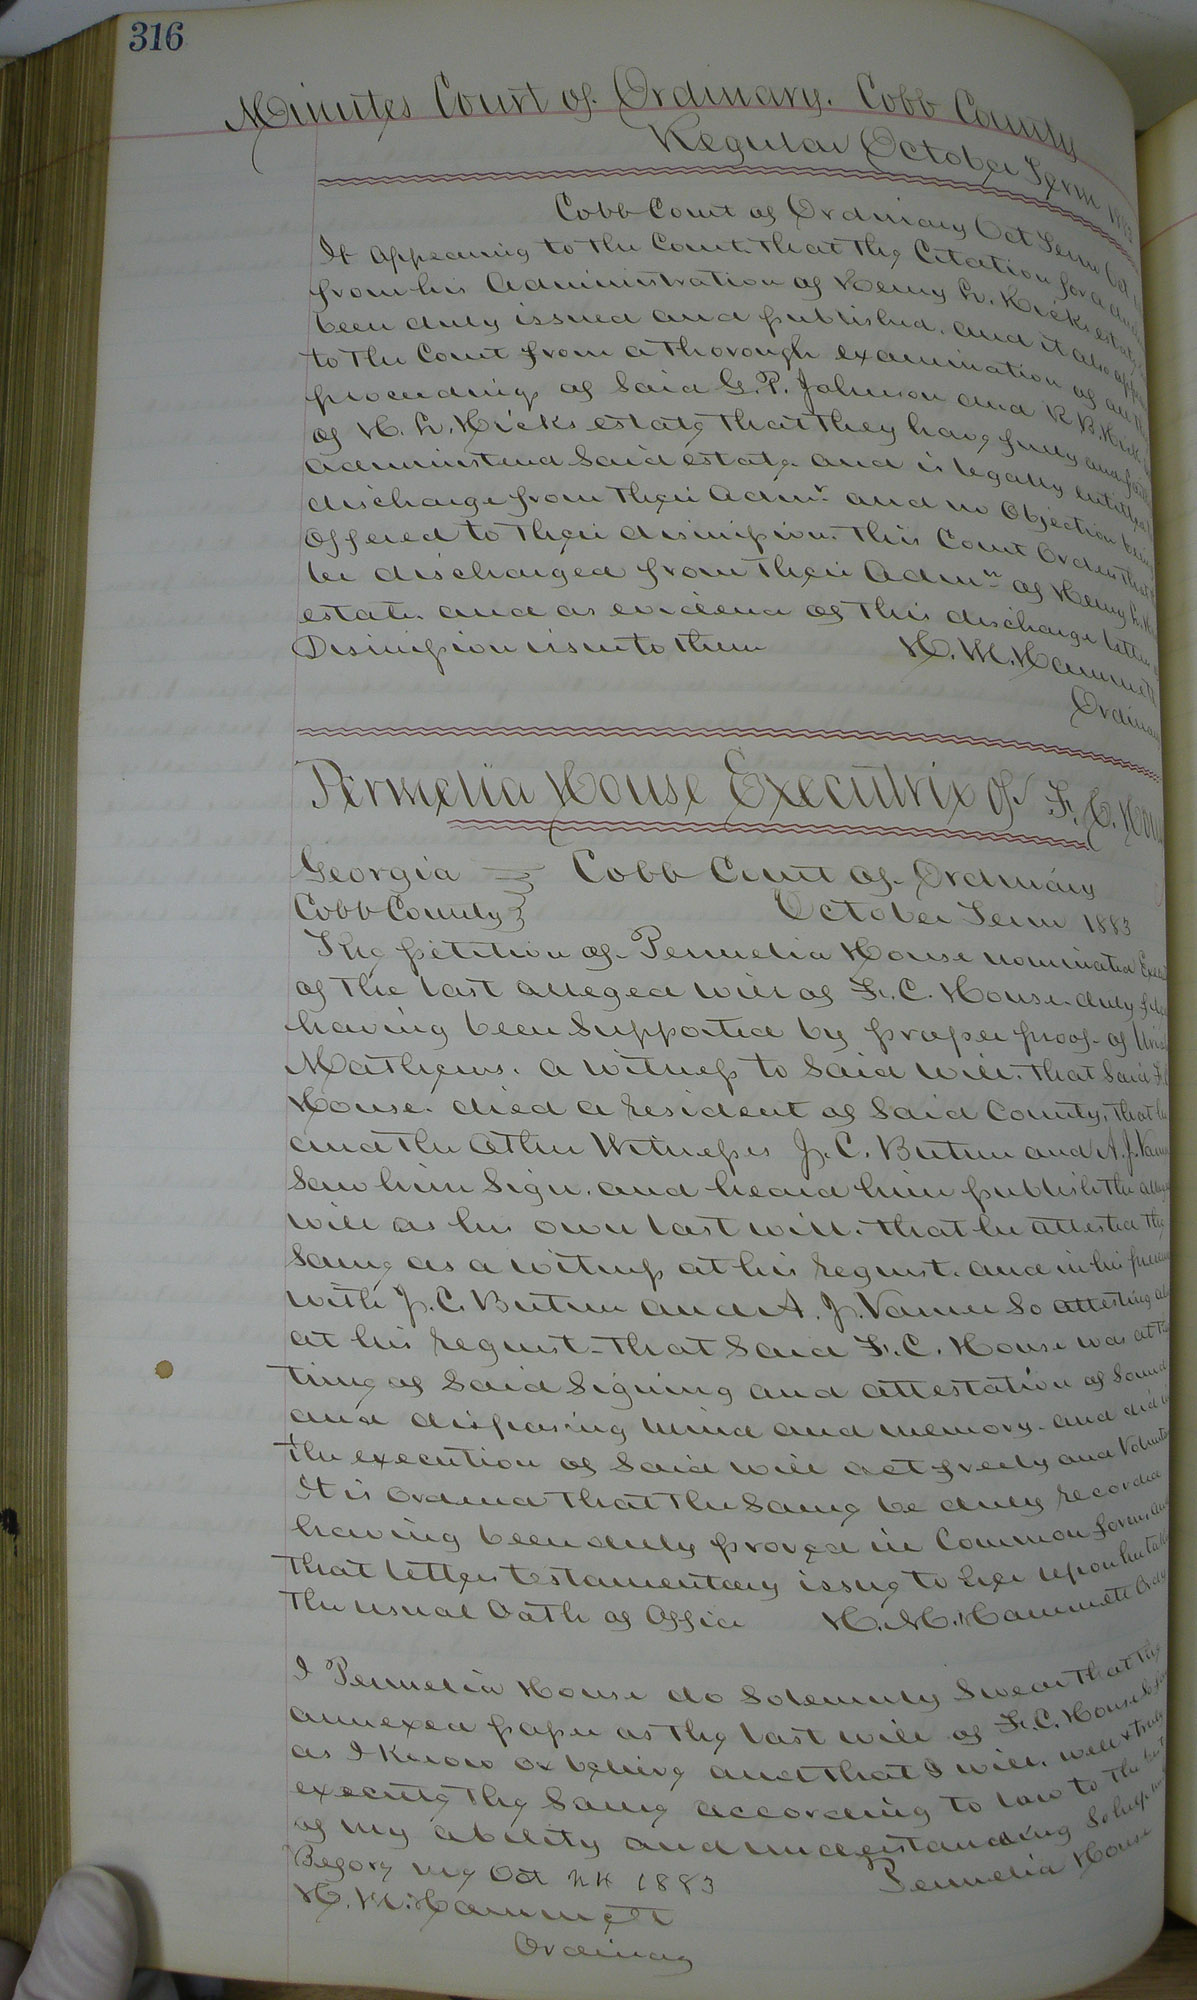 316
Minutes Court of Ordinary. Cobb County
Regular October Term
Cobb Court of Ordinary Oct Term
It appearing to the Court that the Citation for a
from his Administration of Henry L. Hicks estate
been duly issued and published, and it also
to the Court from a thorough examination of all the
proceedings of said G. P. Johnson and R B. Hicks
of H. L. Hicks estate that they have fully and
administered said estate and is legally entitled
discharge from their Admr and no Objection being
Offered to their dismission. This Court Orders that
be discharged from their Admn of Henry L.
estate. and as evidence of this discharge letters
Dismission issue to them H. M. Hammett
Ordinary
Permelia House Executrix of F. C. House
Georgia } Cobb Court of Ordinary
Cobb County } October Term 1883
The petition of Permelia House nominated
of the last alleged will of F. C. House. duly
having been supported by proper proof of
Mathews. a witness to said will. that said F.
House. died a resident of said County, that he
and the other Witnesses J. C. Butner and A. J.
Saw him sign. and heard him publish the
will as his own last will. that he attested the
same as a witness at his request. and in his presence
with J. C. Butner and A. J. so attesting
at his request - that said F. C. House was at the
time of said signing and attestation of Sound
and disposing mind and memory. and did in
the execution of said will act freely and
It is ordered that the same be duly recorded
having been duly proved in Common form and
that letters testamentary issue to her upon her
the usual Oath of Office H. M. Hammett Ordy
I Permelia House do Solemnly Swear that the
annexed paper as the last will of F. C. House
as I know or believe and that I will. well & truly
execute the same according to law to the best
of my ability and understanding So help
Before me Oct 24 1883 Permelia House
H. M. Hammett
Ordinary